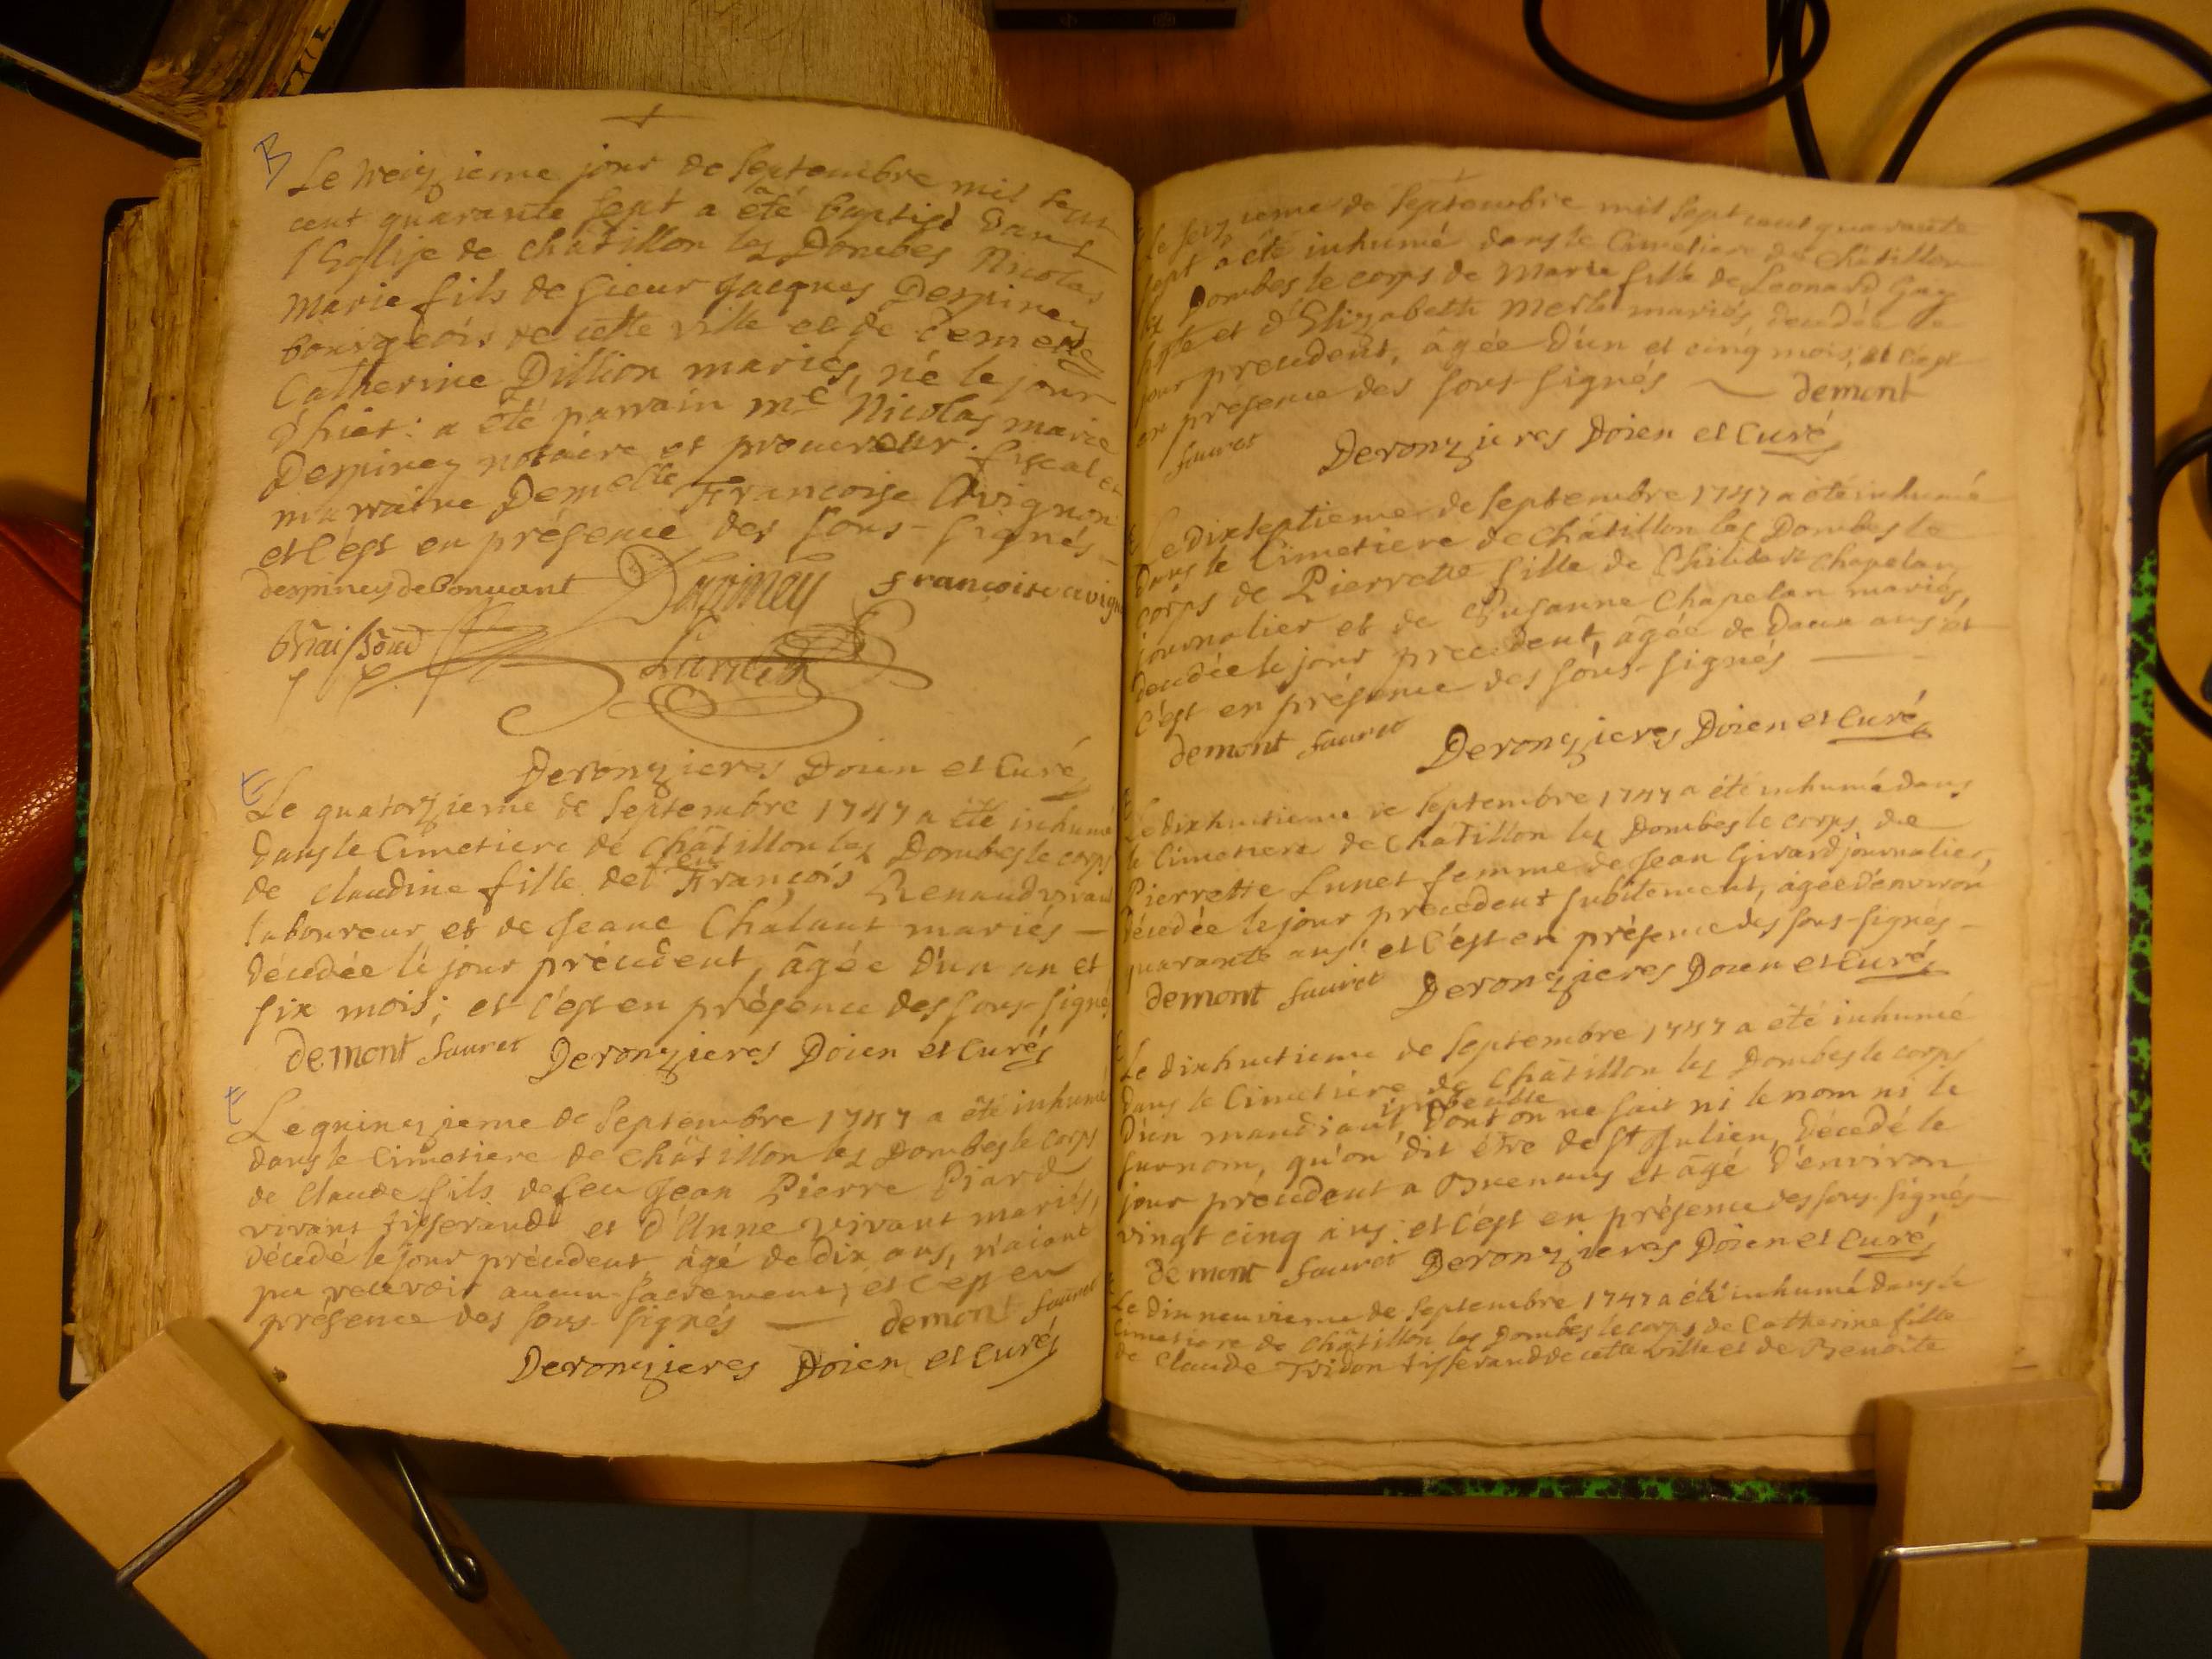 B
Le treizieme jour de Septembre mil sept
cent quarante sept a été baptisé dans
l'Eglise de châtillon les Dombes Nicolas
Marie fils de sieur Jacques Despiney
bourgeois de cette ville et de Demelle
Catherine Dillion mariés, né le jour
d'hier: a été parrain me Nicolas marie
Despiney notaire et procureur fiscal et
marraine Demelle Francoise Avignon
et c'est en présence des sous-signés
despiney de Bonvant Despiney francoise avignon
Deronzieres Doien et Curé
E
Le quatorzieme de Septembre 1747 a été inhumé
dans le Cimetiere de châtillon les Dombes le corps
de Claudine fille de feu François Renaud vivant
laboureur et de Jeane Chalant mariés —
décédée le jour précedent, âgée d'un an et
six mois; et c'est en présence des sous-signés
demont sauret Deronzieres Doien et Curé
E
Le quinzieme de Septembre 1747 a été inhumé
dans le Cimetiere de châtillon les Dombes le corps
de Claude fils de feu Jean Pierre Piard
vivant tisserand et d'Anne vivant mariés,
décédé le jour précedent, âgé de dix ans, n'aiant
pu recevoir aucun sacrement; et c'est en
présence des sous-signés — demont sauret
Deronzieres Doien et Curé
Le seizieme de Septembre mil sept cent quarante
sept a été inhumé dans le Cimetiere de Châtillon
les Dombes le corps de Marie fille de Leonard Gay
et d'Elizabeth Merle mariés, décédée le
jour precedent, âgée d'un et cinq mois; et c'est
en présence des sous-signés — demont
sauret Deronzieres Doien et Curé
Le dixseptieme de Septembre 1747 a été inhumé
dans le Cimetiere de Châtillon les Dombes le
corps de Pierrette fille de Philibert Chapelan
journalier et de Susanne Chapelan mariés,
décédée le jour precedent, âgée de deux ans et
c'est en présence des sous-signés —
demont sauret Deronzieres Doien et Curé
Le dixhuitieme de Septembre 1747 a été inhumé dans
le Cimetiere de Chatillon les Dombes le corps de
Pierrette Lunet femme de Jean Girard journalier,
décédée le jour precedent subitement, âgée d'environ
quarante ans: et c'est en présence des sous-signés —
demont sauret Deronzieres Doien et Curé
Le dixhuitieme de Septembre 1747 a été inhumé
dans le Cimetiere de Châtillon les Dombes le corps
d'un mandiant imbecille, dont on ne sait ni le nom ni le
surnom, qu'on dit être de St Julien, décédé le
jour précedent a Buenans et âgé d'environ
vingt cinq ans: et c'est en présence des sous-signés
demont sauret Deronzieres Doien et Curé
Le dixneuvieme de Septembre 1747 a été inhumé dans le
Cimetiere de Châtillon les Dombes le corps de Catherine fille
de Claude Tridon tisserand de cette ville et de Benoite